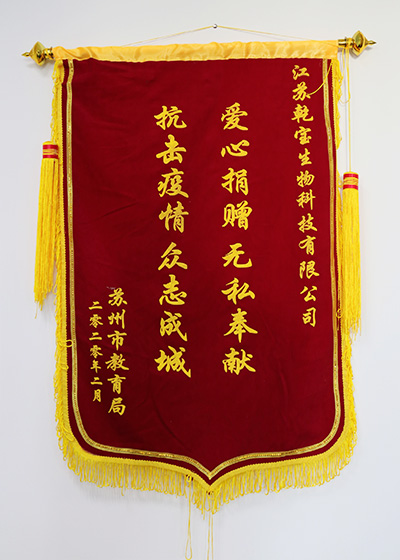 江苏乾宝生物科技有限公司
爱心捐赠无私奉献
抗击疫情众志成城
苏州市教育局
二零二零年二月